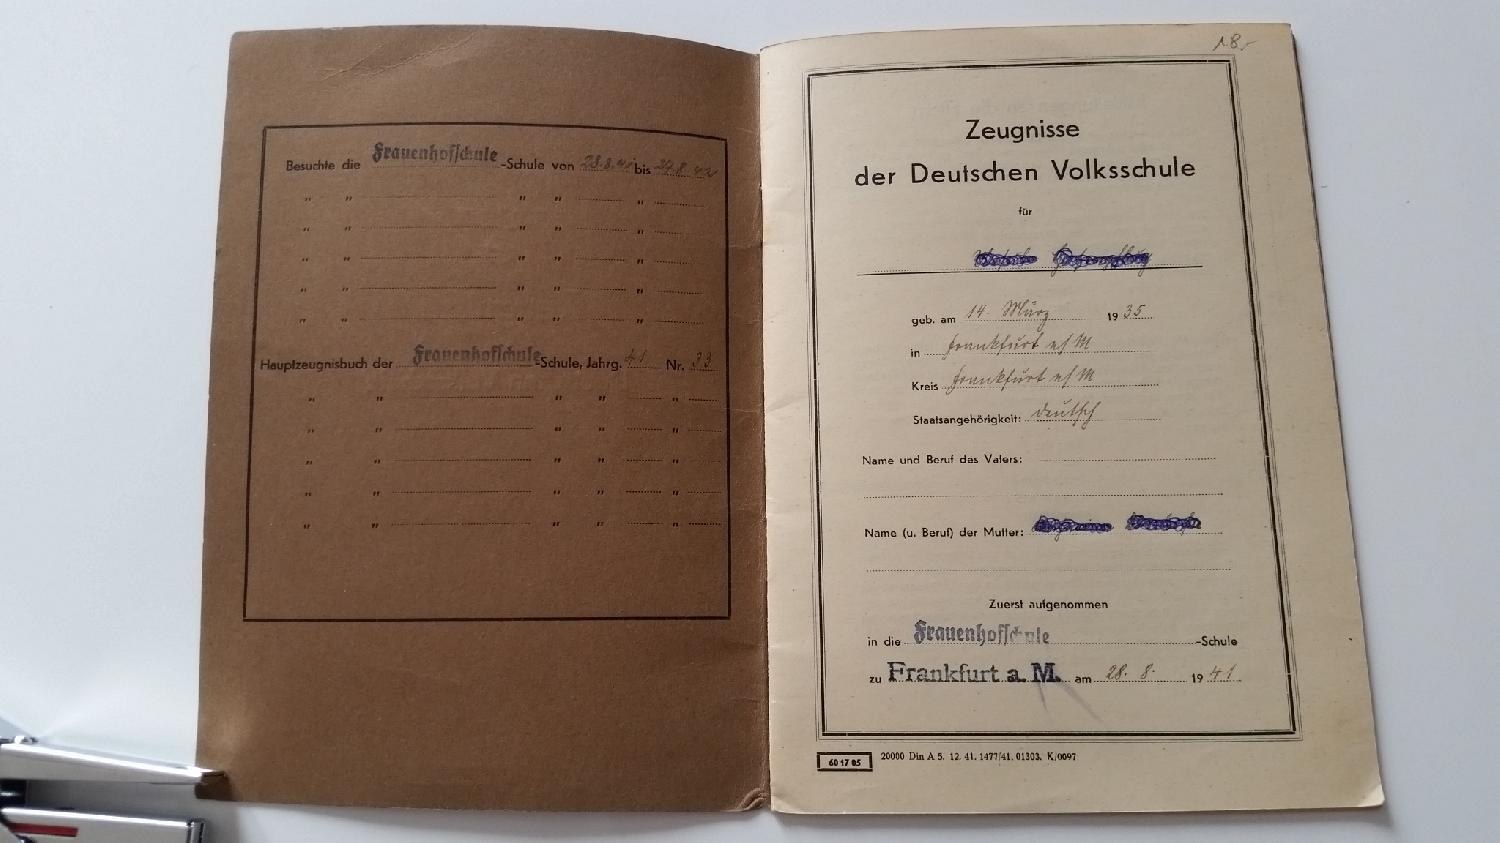 Besuchte die Frauenhofschule -Schule von 28.8.41 bis 27.8.42
" " " " "
" " " " "
" " " " "
" " " " "
" " " " "
Hauptzeugnisbuch der Frauenhofschule -Schule, Jahrg. 41 Nr. 33
" " " " "
" " " " "
" " " " "
" " " " "
" " " " "
18,-
Zeugnisse
der Deutschen Volksschule
für
geb. am 14. März 1935
in Frankfurt a/M
Kreis Frankfurt a/M
Staatsangehörigkeit: deutsch
Name und Beruf des Vaters:
Name (u. Beruf) der Mutter:
Zuerst aufgenommen
in die Frauenhofschule -Schule
zu Frankfurt a. M. am 28. 8. 1941.
60 17 05 20000 Din A 5. 12. 41. 1477/41. 01303. K/0097